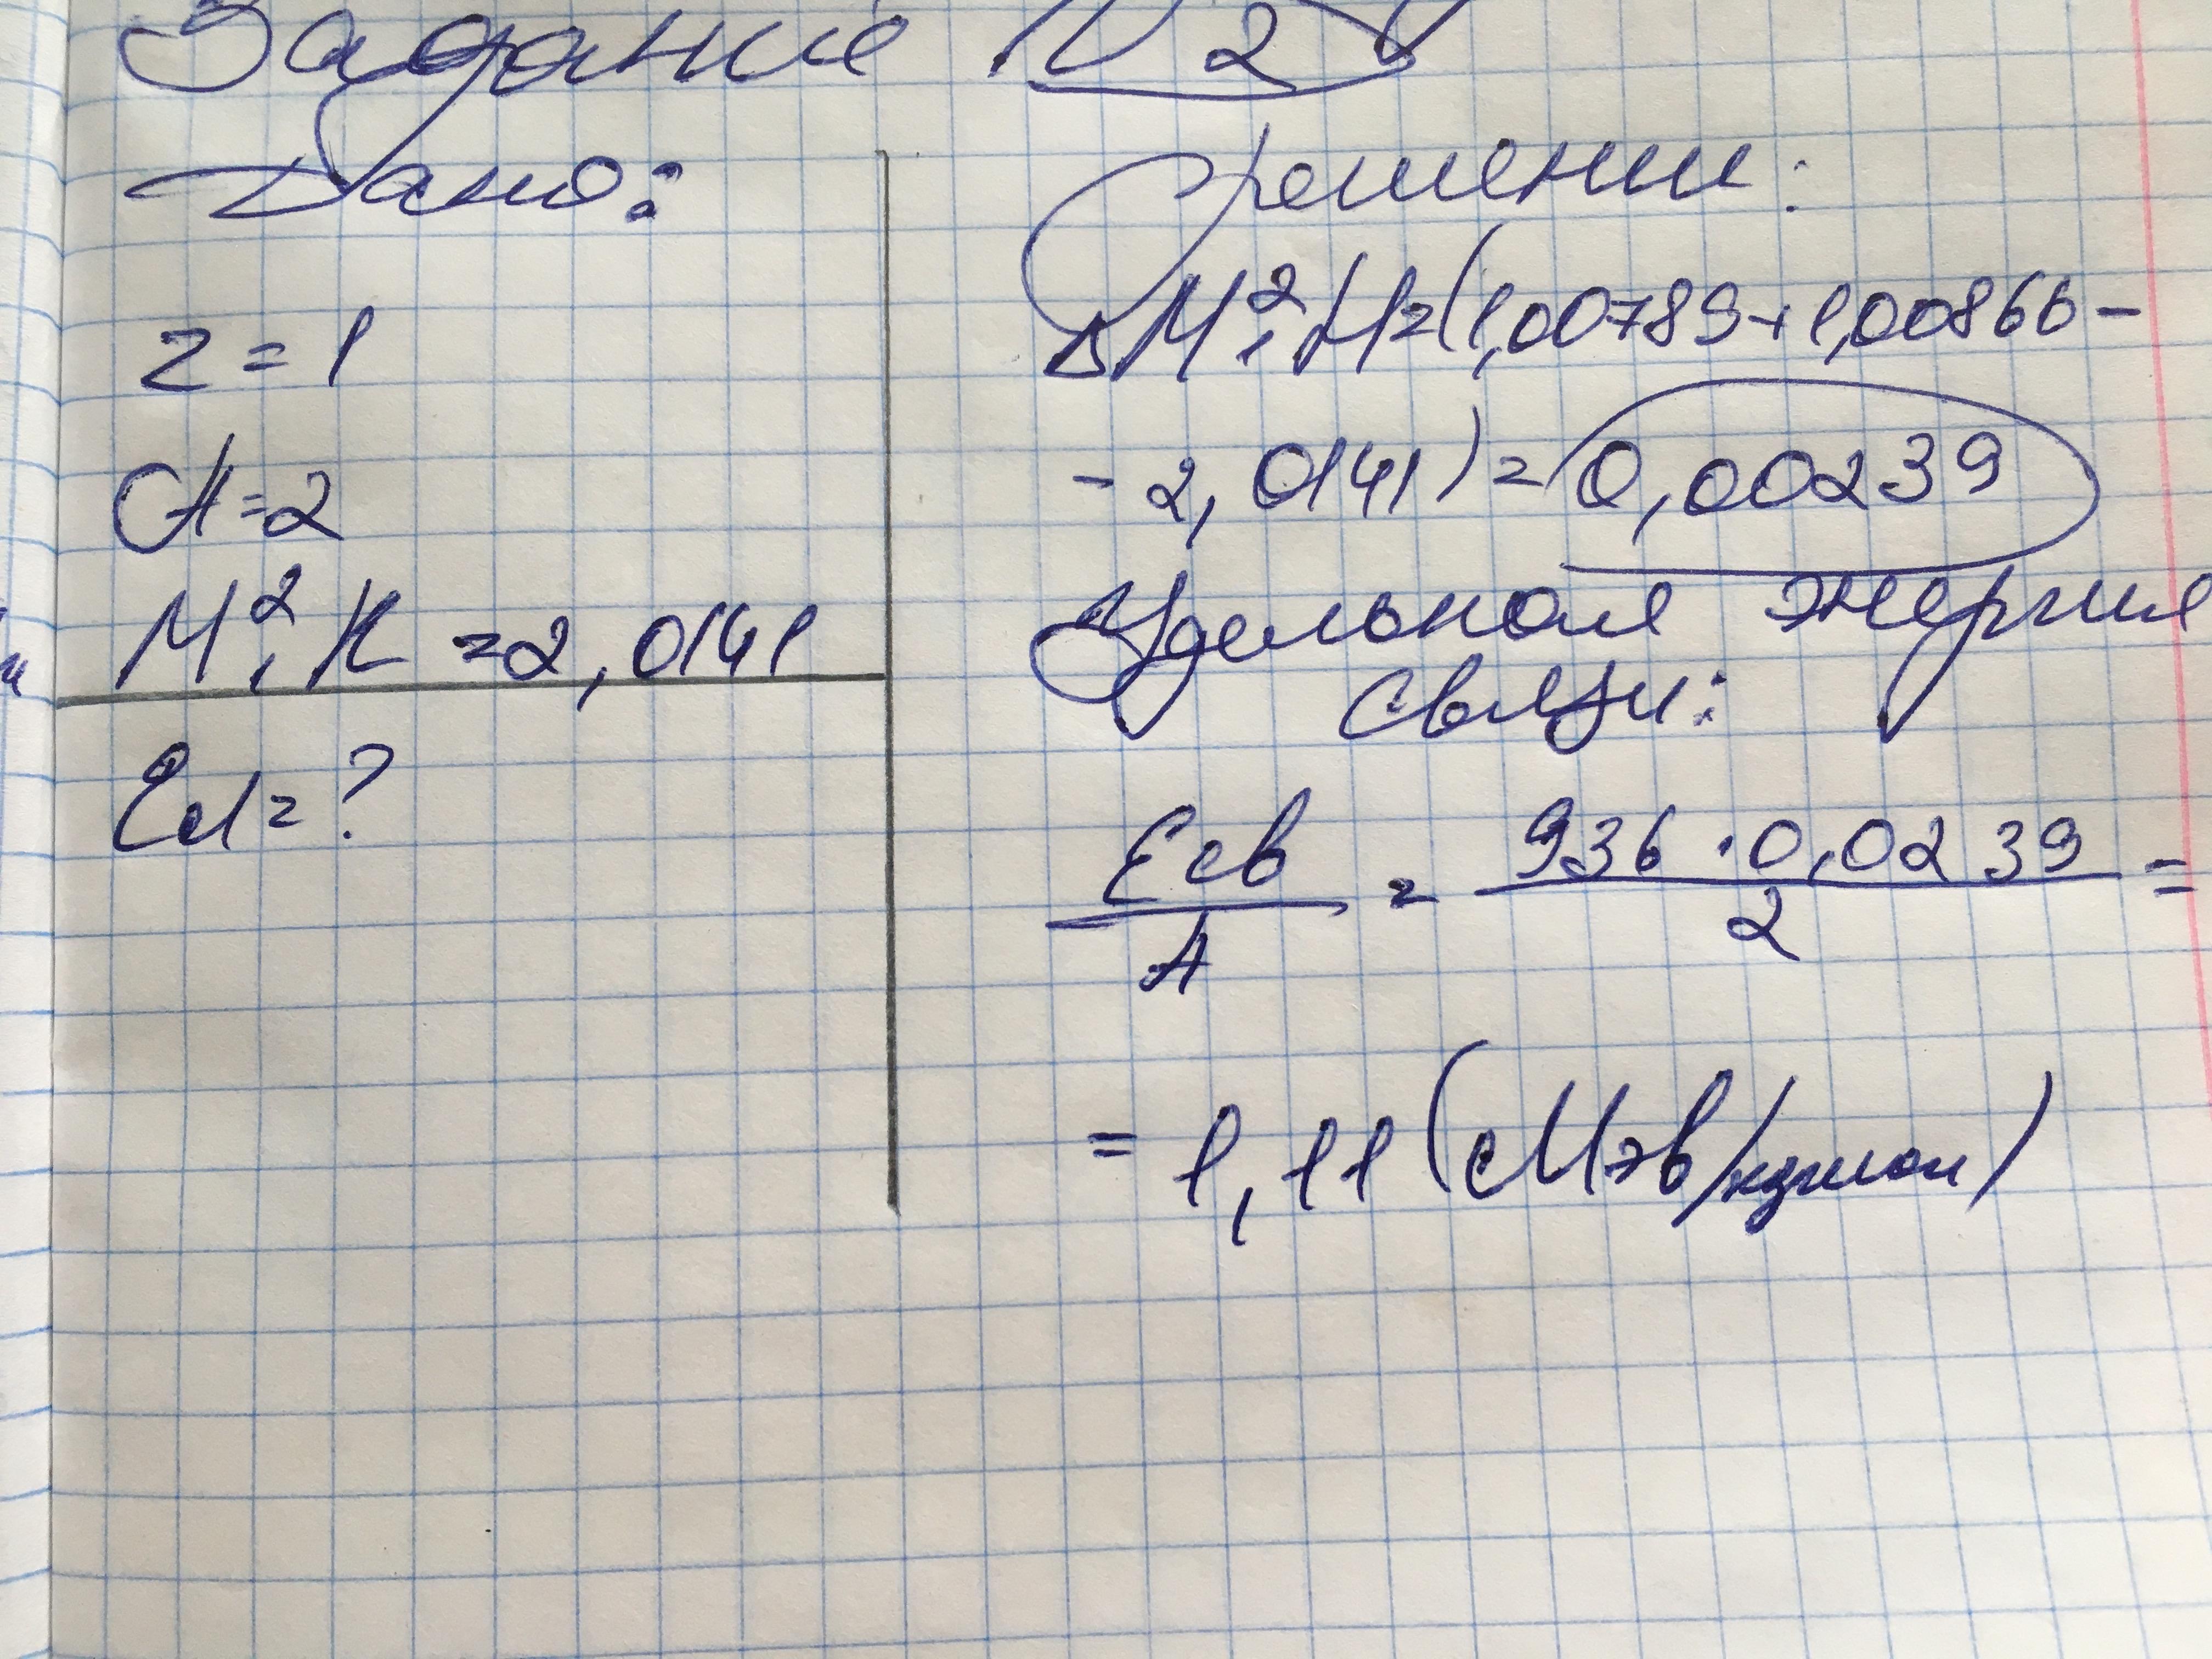 Задание N 2
Дано:
Z = 1
A = 2
M ²₁H = 2,0141
Eсв = ?
Решение:
ΔM ²₁H = (1,00789 + 1,00866 -
- 2,0141) = 0,00239
Удельная энергия
связи:
Eсв / A = 936 · 0,0239 / 2 =
= 1,11 (Мэв/нуклон)